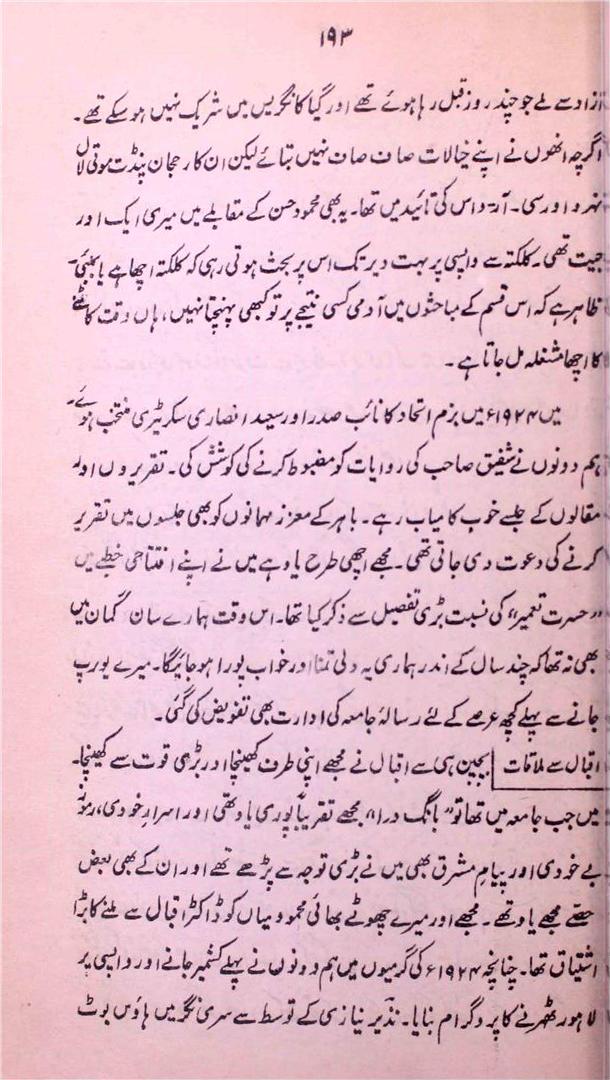 ۱۹۳
آزاد سے ملے جو چند روز قبل رہا ہوئے تھے اور گیا کانگریس میں شریک نہیں ہو سکے تھے۔
اگرچہ انھوں نے اپنے خیالات صاف صاف نہیں بتائے لیکن ان کا رجحان پنڈت موتی لال
نہرو اور سی۔ آر۔ داس کی تائید میں تھا۔ یہ بھی محمود حسن کے مقابلے میں میری ایک اور
جیت تھی۔ کلکتہ سے واپسی پر بہت دیر تک اس پر بحث ہوتی رہی کہ کلکتہ اچھا ہے یا بمبئی۔
ظاہر ہے کہ اس قسم کے مباحثوں میں آدمی کسی نتیجے پر تو کبھی پہنچتا نہیں، ہاں وقت کاٹنے
کا اچھا مشغلہ مل جاتا ہے۔
میں ۱۹۲۴ء میں بزم اتحاد کا نائب صدر اور سعید انصاری سکریٹری منتخب ہوئے۔
ہم دونوں نے شفیق صاحب کی روایات کو مضبوط کرنے کی کوشش کی۔ تقریروں اور
مقالوں کے جلسے خوب کامیاب رہے۔ باہر کے معزز مہمانوں کو بھی جلسوں میں تقریر
کرنے کی دعوت دی جاتی تھی۔ مجھے اچھی طرح یاد ہے میں نے اپنے افتتاحی خطبے میں
"حسرت تعمیر" کی نسبت بڑی تفصیل سے ذکر کیا تھا۔ اس وقت ہمارے سان گمان میں
بھی نہ تھا کہ چند سال کے اندر ہماری یہ دلی تمنا اور خواب پورا ہو جائیگا۔ میرے یورپ
جانے سے پہلے کچھ عرصے کے لئے رسالۂ جامعہ کی ادارت بھی تفویض کی گئی۔
اقبال سے ملاقات بچپن ہی سے اقبال نے مجھے اپنی طرف کھینچا اور بڑی قوت سے کھینچا۔
میں جب جامعہ میں تھا تو "بانگ درا" مجھے تقریباً پوری یاد تھی اور اسرار خودی، رموز
بے خودی اور پیامِ مشرق بھی میں نے بڑی توجہ سے پڑھے تھے اور ان کے بھی بعض
حصے مجھے یاد تھے۔ مجھے اور میرے چھوٹے بھائی محمود میاں کو ڈاکٹر اقبال سے ملنے کا بڑا
اشتیاق تھا۔ چنانچہ ۱۹۲۴ء کی گرمیوں میں ہم دونوں نے پہلے کشمیر جانے اور واپسی پر
لاہور ٹھہرنے کا پروگرام بنایا۔ نذیر نیازی کے توسط سے سری نگر میں ہاؤس بوٹ